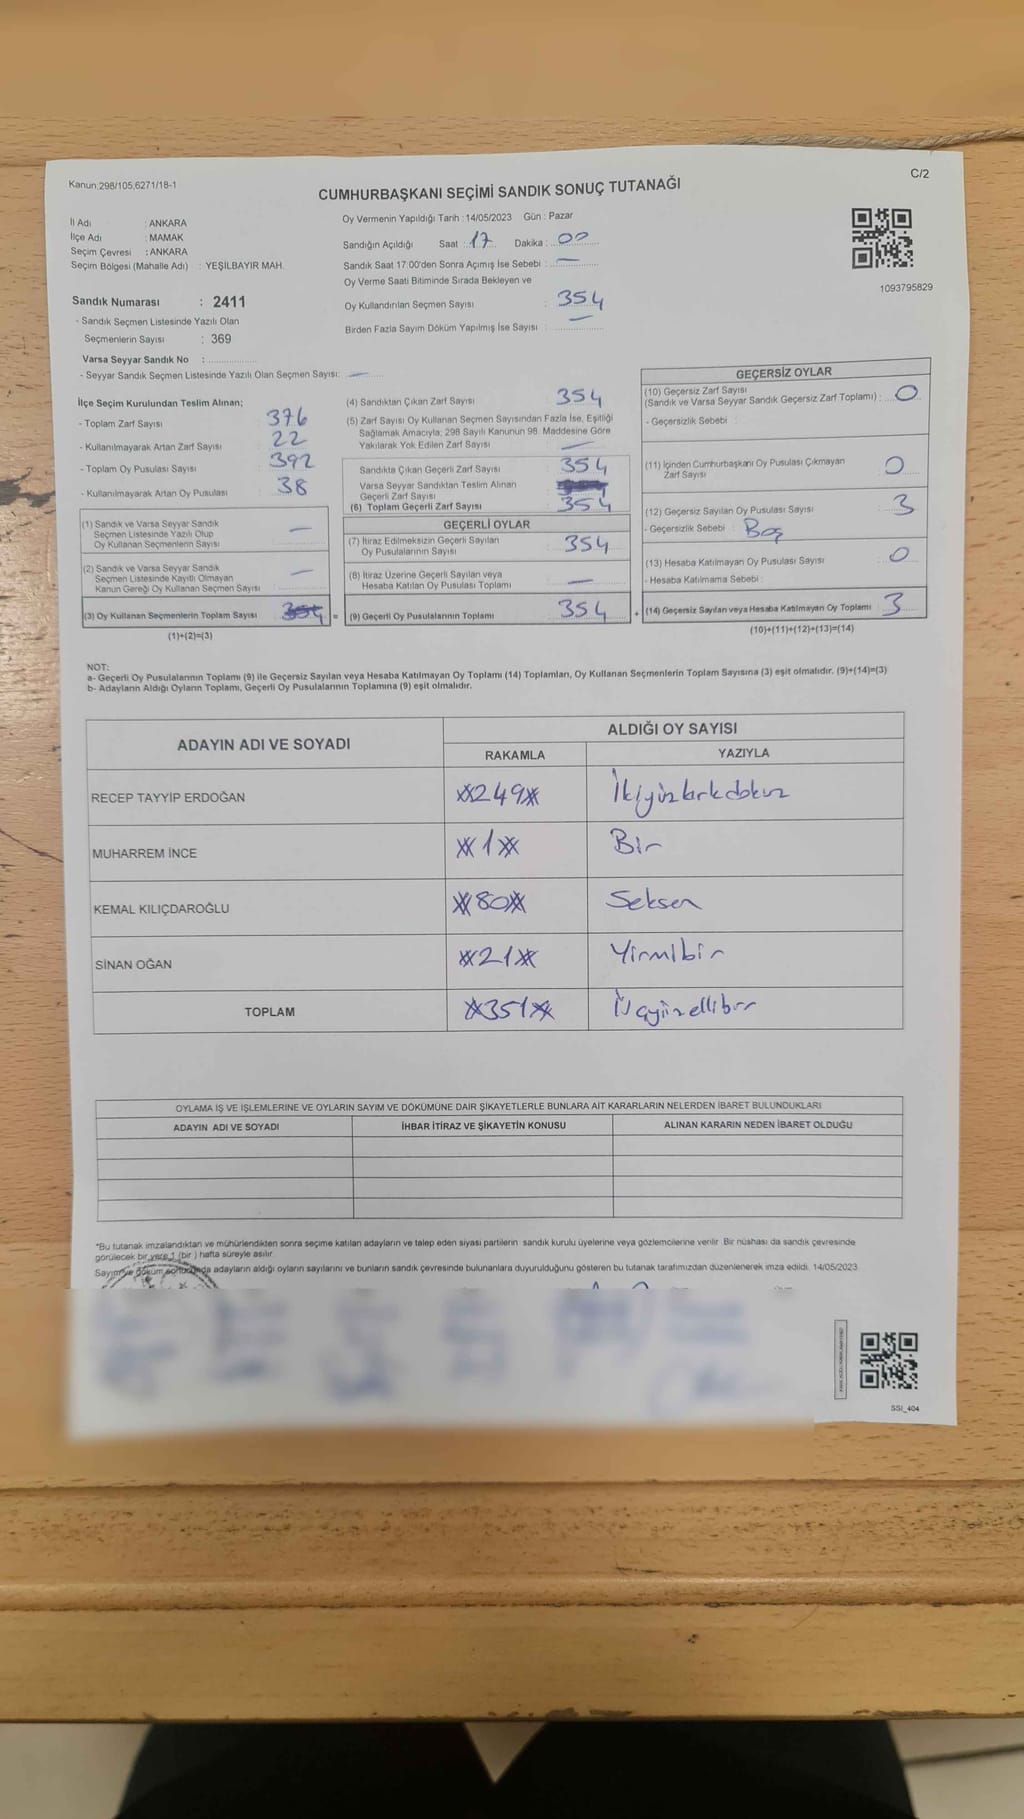 Kanun:298/105,6271/18-1
C/2
CUMHURBAŞKANI SEÇİMİ SANDIK SONUÇ TUTANAĞI
İl Adı : ANKARA
İlçe Adı : MAMAK
Seçim Çevresi : ANKARA
Seçim Bölgesi (Mahalle Adı) : YEŞİLBAYIR MAH.
Sandık Numarası : 2411
- Sandık Seçmen Listesinde Yazılı Olan
Seçmenlerin Sayısı : 369
Varsa Seyyar Sandık No :
- Seyyar Sandık Seçmen Listesinde Yazılı Olan Seçmen Sayısı: —
Oy Vermenin Yapıldığı Tarih : 14/05/2023 Gün : Pazar
Sandığın Açıldığı Saat : 17 Dakika : 00
Sandık Saat 17:00'den Sonra Açımış İse Sebebi : —
Oy Verme Saati Bitiminde Sırada Bekleyen ve
Oy Kullandırılan Seçmen Sayısı : 354
Birden Fazla Sayım Döküm Yapılmış İse Sayısı : —
1093795829
İlçe Seçim Kurulundan Teslim Alınan;
- Toplam Zarf Sayısı 376
- Kullanılmayarak Artan Zarf Sayısı 22
- Toplam Oy Pusulası Sayısı 392
- Kullanılmayarak Artan Oy Pusulası 38
(1) Sandık ve Varsa Seyyar Sandık
Seçmen Listesinde Yazılı Olup
Oy Kullanan Seçmenlerin Sayısı —
(2) Sandık ve Varsa Seyyar Sandık
Seçmen Listesinde Kayıtlı Olmayan
Kanun Gereği Oy Kullanan Seçmen Sayısı —
(3) Oy Kullanan Seçmenlerin Toplam Sayısı 354 =
(1)+(2)=(3)
(4) Sandıktan Çıkan Zarf Sayısı 354
(5) Zarf Sayısı Oy Kullanan Seçmen Sayısından Fazla İse, Eşitliği
Sağlamak Amacıyla; 298 Sayılı Kanunun 98. Maddesine Göre
Yakılarak Yok Edilen Zarf Sayısı —
Sandıkta Çıkan Geçerli Zarf Sayısı 354
Varsa Seyyar Sandıktan Teslim Alınan
Geçerli Zarf Sayısı
(6) Toplam Geçerli Zarf Sayısı 354
GEÇERLİ OYLAR
(7) İtiraz Edilmeksizin Geçerli Sayılan
Oy Pusulalarının Sayısı 354
(8) İtiraz Üzerine Geçerli Sayılan veya
Hesaba Katılan Oy Pusulası Toplamı —
(9) Geçerli Oy Pusulalarının Toplamı 354 +
GEÇERSİZ OYLAR
(10) Geçersiz Zarf Sayısı
(Sandık ve Varsa Seyyar Sandık Geçersiz Zarf Toplamı) : 0
- Geçersizlik Sebebi :
(11) İçinden Cumhurbaşkanı Oy Pusulası Çıkmayan
Zarf Sayısı 0
(12) Geçersiz Sayılan Oy Pusulası Sayısı 3
- Geçersizlik Sebebi : Boş
(13) Hesaba Katılmayan Oy Pusulası Sayısı 0
- Hesaba Katılmama Sebebi :
(14) Geçersiz Sayılan veya Hesaba Katılmayan Oy Toplamı 3
(10)+(11)+(12)+(13)=(14)
NOT:
a- Geçerli Oy Pusulalarının Toplamı (9) ile Geçersiz Sayılan veya Hesaba Katılmayan Oy Toplamı (14) Toplamları, Oy Kullanan Seçmenlerin Toplam Sayısına (3) eşit olmalıdır. (9)+(14)=(3)
b- Adayların Aldığı Oyların Toplamı, Geçerli Oy Pusulalarının Toplamına (9) eşit olmalıdır.
ADAYIN ADI VE SOYADI ALDIĞI OY SAYISI
RAKAMLA YAZIYLA
RECEP TAYYİP ERDOĞAN 249 İkiyüzkırkdokuz
MUHARREM İNCE 1 Bir
KEMAL KILIÇDAROĞLU 80 Seksen
SİNAN OĞAN 21 Yirmibir
TOPLAM 351 Üçyüzellibir
OYLAMA İŞ VE İŞLEMLERİNE VE OYLARIN SAYIM VE DÖKÜMÜNE DAİR ŞİKAYETLERLE BUNLARA AİT KARARLARIN NELERDEN İBARET BULUNDUKLARI
ADAYIN ADI VE SOYADI İHBAR İTİRAZ VE ŞİKAYETİN KONUSU ALINAN KARARIN NEDEN İBARET OLDUĞU
*Bu tutanak imzalandıktan ve mühürlendikten sonra seçime katılan adayların ve talep eden siyasi partilerin sandık kurulu üyelerine veya gözlemcilerine verilir. Bir nüshası da sandık çevresinde
görülecek bir yere 1 (bir ) hafta süreyle asılır.
Sayım ve döküm sonucunda adayların aldığı oyların sayılarını ve bunların sandık çevresinde bulunanlara duyurulduğunu gösteren bu tutanak tarafımızdan düzenlenerek imza edildi. 14/05/2023
SSI_404